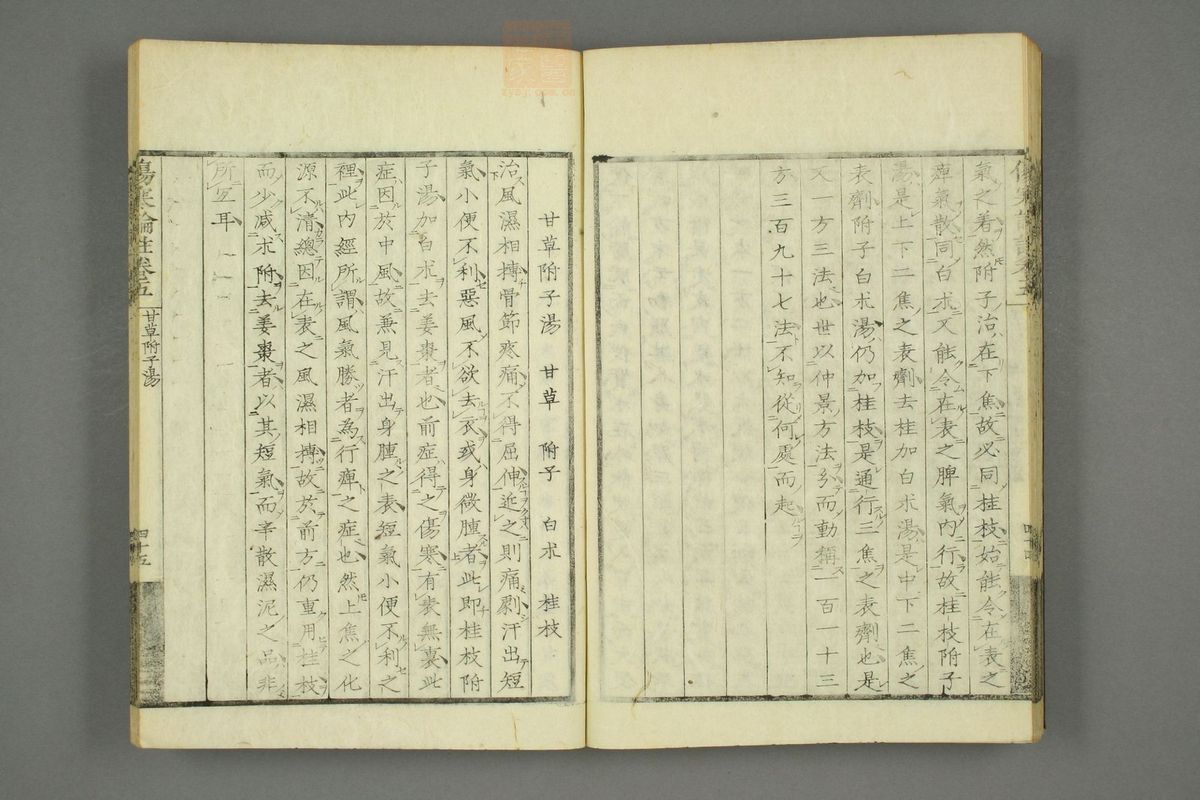 氣之着然附子治在下焦故必同桂枝始能令在表之
痺氣散同白朮又能令在表之脾氣內行故桂枝附子
湯是上下二焦之表劑去桂加白朮湯是中下二焦之
表劑附子白朮湯仍加桂枝是通行三焦之表劑也是
又一方三法也世以仲景方法弓而動稱一百一十三
方三百九十七法不知從何處而起
甘草附子湯 甘草 附子 白朮 桂枝
治風濕相搏骨節疼痛不得屈伸近之則痛劇汗出短
氣小便不利惡風不欲去衣或身微腫者此即桂枝附
子湯加白朮去姜棗者也前症得之傷寒有表無裏此
症因於中風故兼見汗出身腫之表短氣小便不利之
裡此內經所謂風氣勝者為行痺之症也然上焦之化
源不清總因在表之風濕相搏故於前方仍重用桂枝
而少減朮附去姜棗者以其短氣而辛散濕泥之品非
所宜耳
傷寒論註卷五
甘草附子湯
四十五